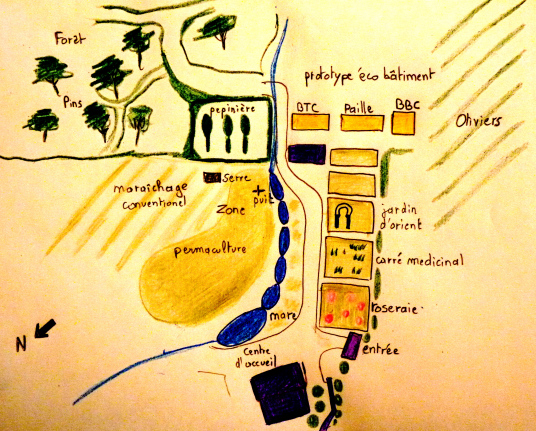 Forêt
Pins
pepinière
prototype éco bâtiment
BTC
Paille
BBC
Oliviers
serre
puit
maraîchage
conventionel
Zone
permaculture
jardin
d'orient
carré medicinal
roseraie
mare
entrée
Centre
d'accueil
N